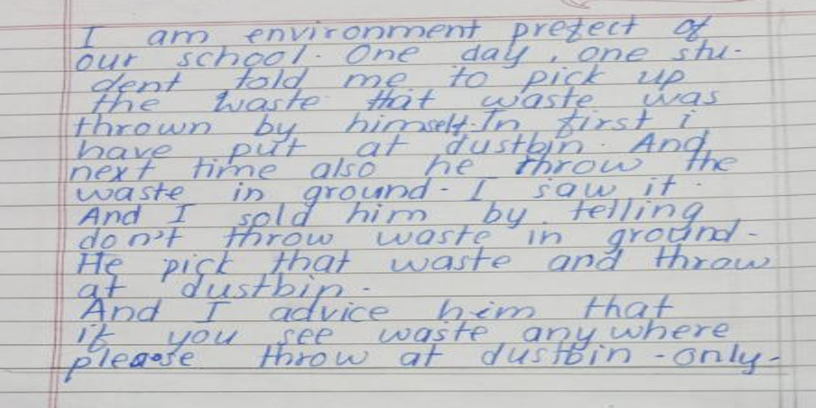 I am environment prefect of
our school. One day, one stu-
dent told me to pick up
the waste that waste was
thrown by himself. In first i
have put at dustbin. And
next time also he throw the
waste in ground. I saw it.
And I sold him by telling
don't throw waste in ground.
He pick that waste and throw
at dustbin.
And I advice him that
if you see waste anywhere
please throw at dustbin only.